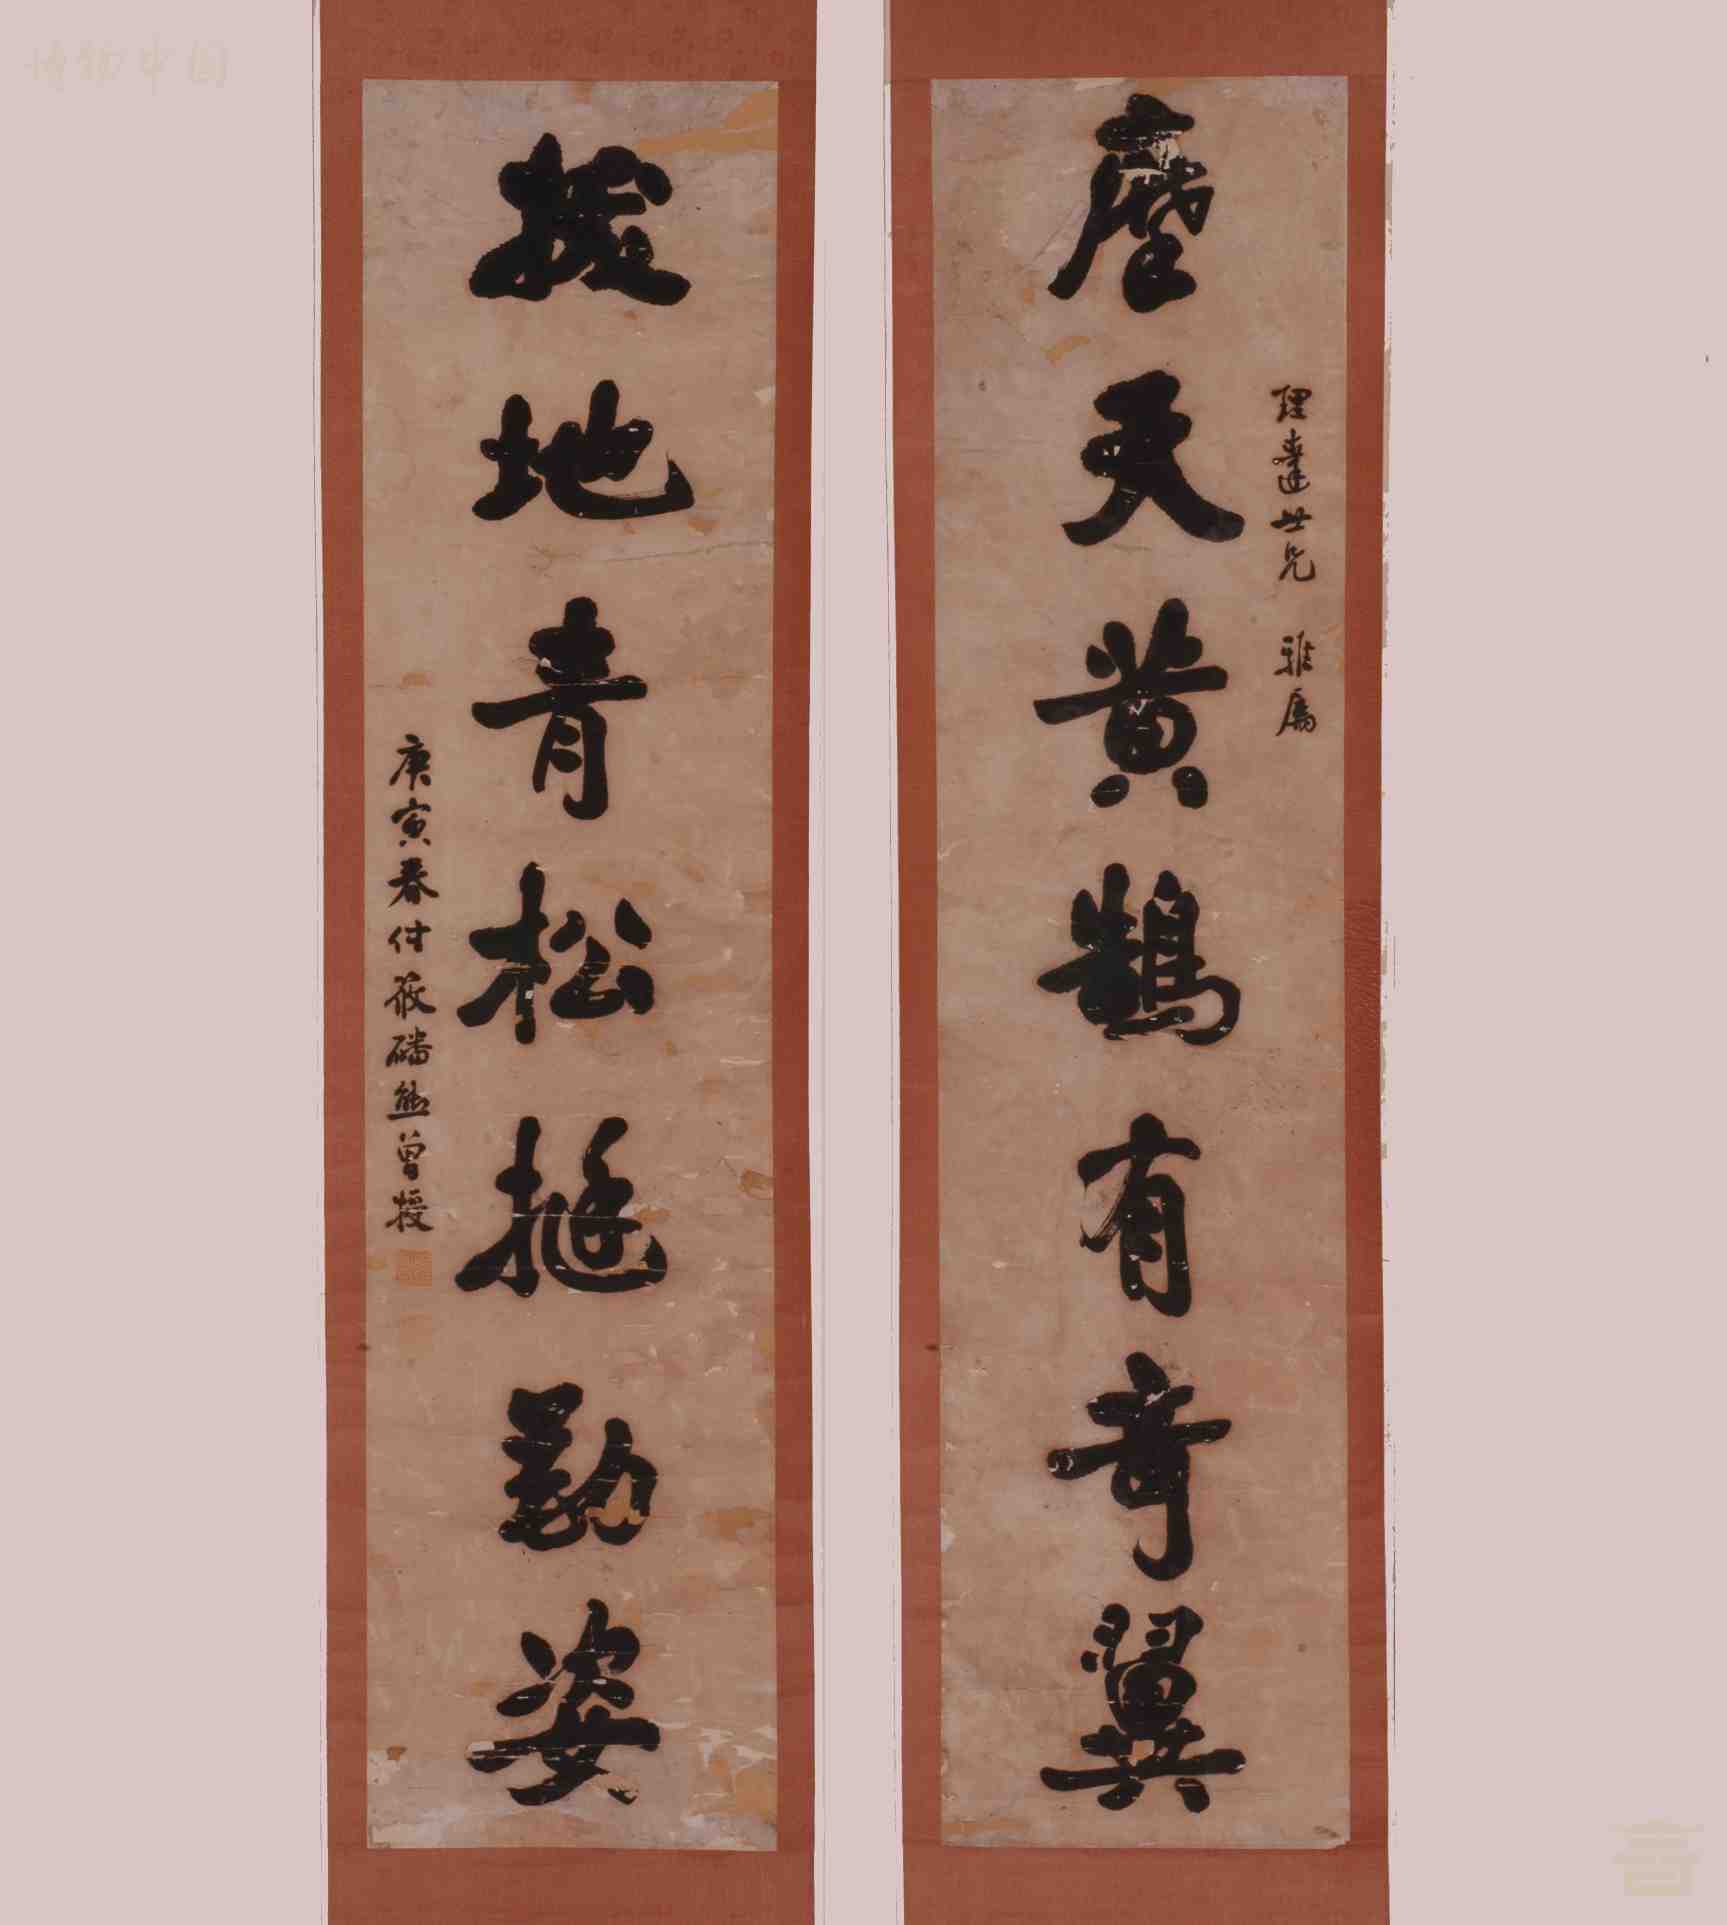 理達世兄 雅屬
摩天黄鵠有奇翼
拔地青松挺勁姿
庚寅春付筱磻熊曾授
博物中国